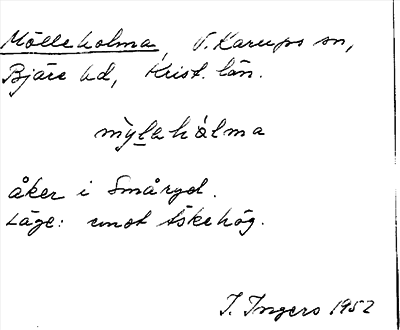 Mölleholma, V. Karups sn,
Bjäre hd, Krist. län.
mỳlahålma
åker i Småryd.
Läge: emot Askehög.
I. Ingers 1952